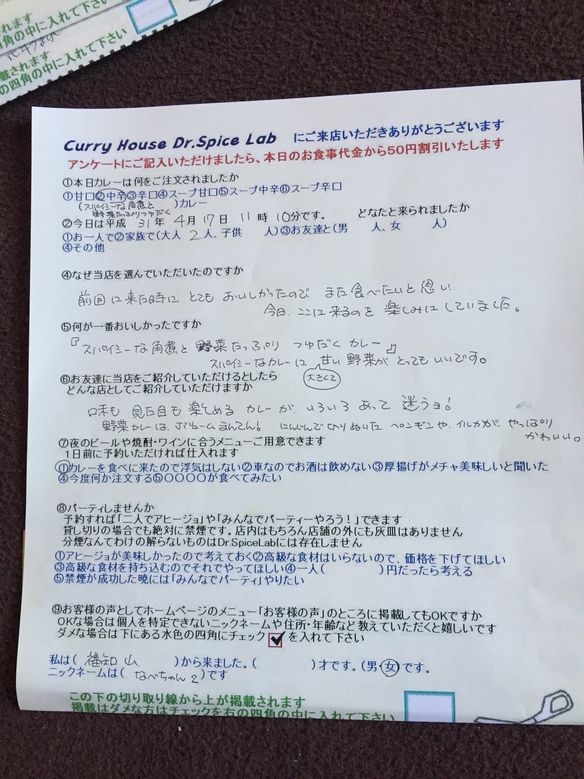 気ません
載されます
の四角の中に入れて下さい
Curry House Dr.Spice Lab にご来店いただきありがとうございます
アンケートにご記入いただけましたら、本日のお食事代金から50円割引いたします
①本日カレーは何をご注文されましたか
①甘口②中辛③辛口④スープ甘口⑤スープ中辛⑥スープ辛口
(スパイシーな角煮と野菜たっぷりつゆだく)カレー
②今日は平成 31年 4月17日 11時10分です。 どなたと来られましたか
①お一人で②家族で(大人 2人、子供 人)③お友達と(男 人、女 人)
④その他
④なぜ当店を選んでいただいたのですか
前回に来た時に とても おいしかったので また食べたいと思い
今日、ここに来るのを 楽しみにしていました。
⑤何が一番おいしかったですか
『スパイシーな角煮と野菜たっぷり つゆだく カレー』
スパイシーなカレーに 甘い野菜が とってもいいです。
大きくて
⑥お友達に当店をご紹介していただけるとしたら
どんな店としてご紹介していただけますか
味も 見た目も 楽しめる カレーが、いろいろ あって 迷うヨ!
野菜カレーは、ボリュームまんてん! にんじんでくりぬいた ペンギンや、イルカがやっぱり
かわいい。
⑦夜のビールや焼酎・ワインに合うメニューご用意できます
1日前に予約いただければ仕入れます
①カレーを食べに来たので浮気はしない②車なのでお酒は飲めない③厚揚げがメチャ美味しいと聞いた
④今度何か注文する⑤〇〇〇〇が食べてみたい
⑧パーティしませんか
予約すれば「二人でアヒージョ」や「みんなでパーティーやろう!」できます
貸し切りの場合でも絶対に禁煙です。店内はもちろん店舗の外にも灰皿はありません
分煙なんてわけの解らないものはDr.SpiceLabには存在しません
①アヒージョが美味しかったので考えておく②高級な食材はいらないので、価格を下げてほしい
③高級な食材を持ち込むのでそれでやってほしい④一人( )円だったら考える
⑤禁煙が成功した暁には「みんなでパーティ」やりたい
⑨お客様の声としてホームページのメニュー「お客様の声」のところに掲載してもOKですか
OKな場合は個人を特定できないニックネームや住所・年齢など教えていただくと嬉しいです
ダメな場合は下にある水色の四角にチェック を入れて下さい
私は( 福知山 )から来ました。( )才です。(男・女)です。
ニックネームは( なべちゃん2 )です
この下の切り取り線から上が掲載されます
掲載はダメな方はチェックを右の四角の中に入れて下さい